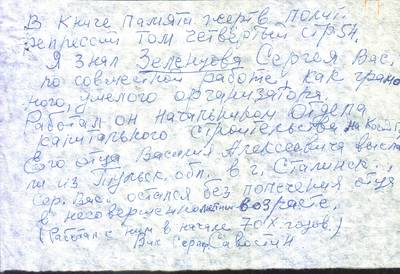 В Книге Памяти жертв полит.
репрессий том четвёртый стр 54.
Я знал Зеленцова Сергея Вас.
по совместной работе, как грамот
ного, умелого организатора.
Работал он начальником отдела
капитального строительства на
Его отца Василия Алексеевича высла
ли из Тульск. обл. в г. Сталинск.
Сер. Вас. остался без попечения отца
в несовершеннолетнем возрасте.
(Работал с ним в начале 70х годов.)
Савостин